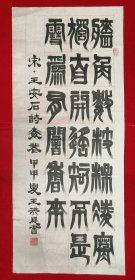 牆角數枝楳凌寒
獨自開遙知不是
雪爲有闇香來
宋·王安石詩 甲申夏王